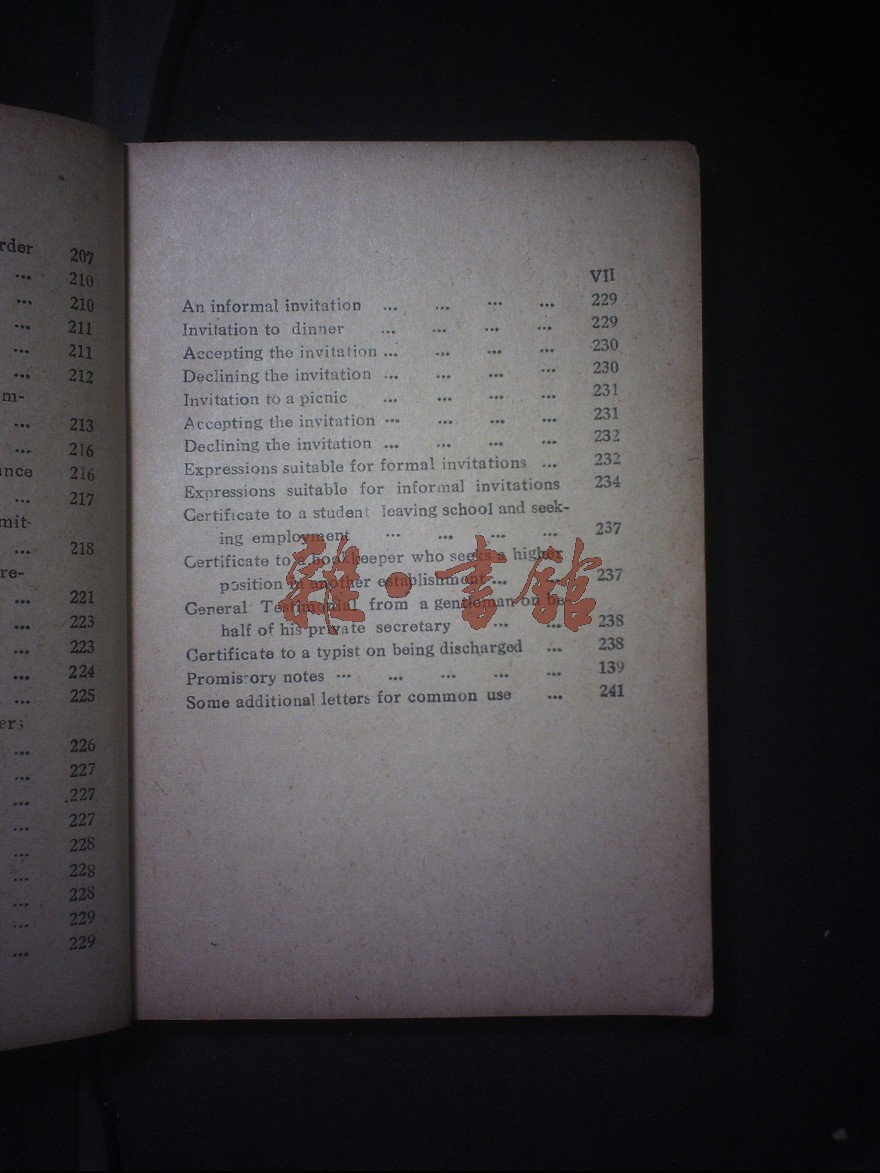 rder
207
... 210
... 210
... 211
... 211
... 212
m-
... 213
... 216
nce 216
... 217
mit-
... 218
re-
... 221
... 223
... 223
... 224
... 225
ers
... 226
... 227
... 227
... 227
... 228
... 228
... 228
... 229
... 229
VII
An informal invitation ... ... ... ... 229
Invitation to dinner ... ... ... ... 229
Accepting the invitation ... ... ... ... 230
Declining the invitation ... ... ... ... 230
Invitation to a picnic ... ... ... ... 231
Accepting the invitation ... ... ... ... 231
Declining the invitation ... ... ... ... 232
Expressions suitable for formal invitations ... 232
Expressions suitable for informal invitations 234
Certificate to a student leaving school and seek-
ing employment ... ... ... ... 237
Certificate to a bookkeeper who seeks a higher
position in another establishment ... ... 237
General Testimonial from a gentleman on be-
half of his private secretary ... ... 238
Certificate to a typist on being discharged ... 238
Promissory notes ... ... ... ... ... 139
Some additional letters for common use ... 241
雜·書館